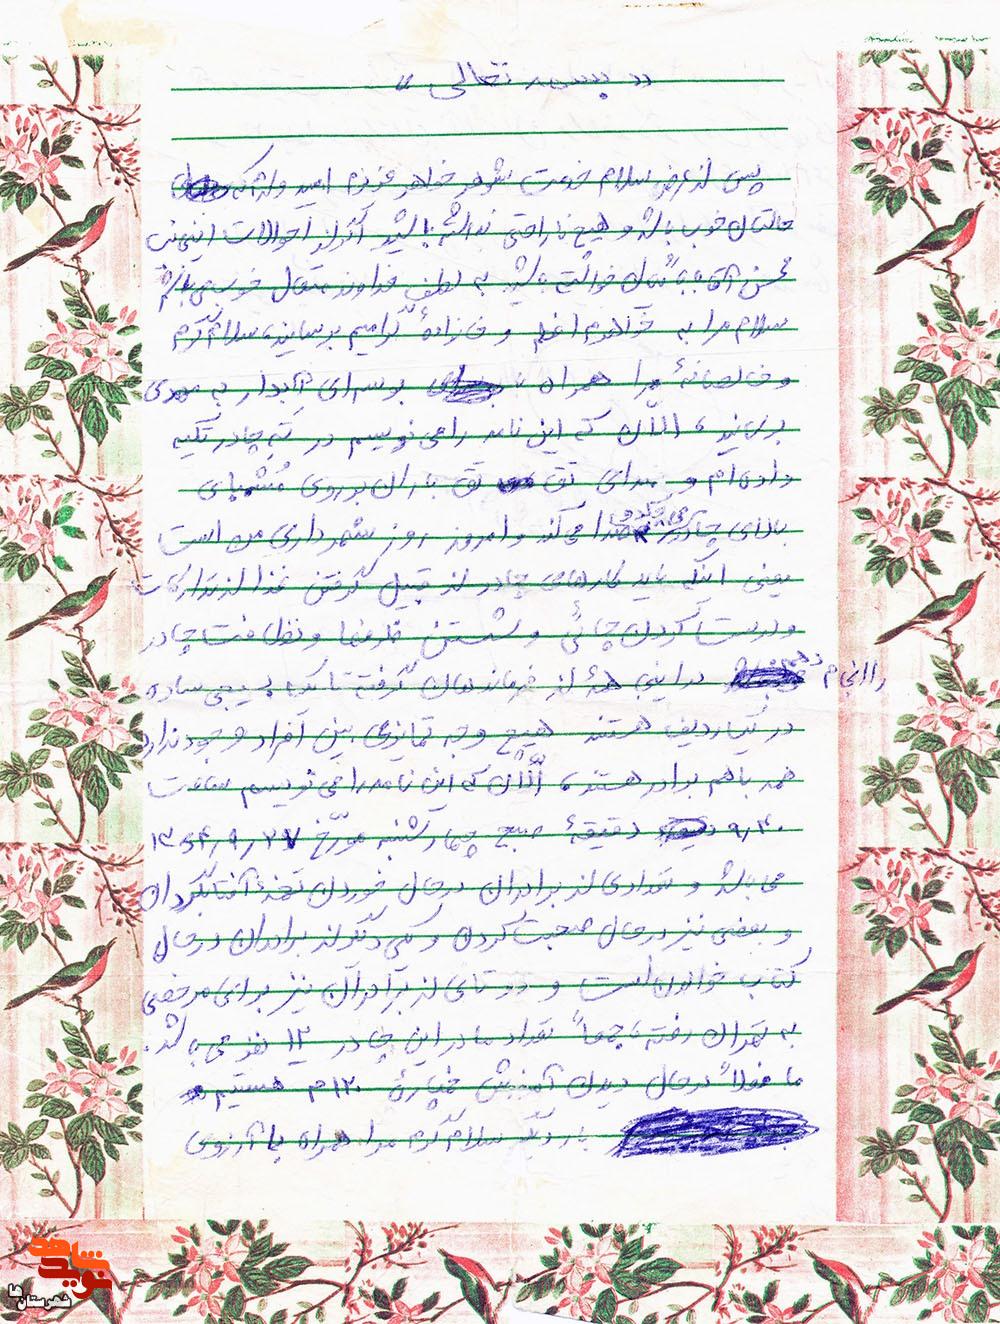 " بسمه تعالی "
پس از عرض سلام خدمت شوهر خواهر عزیزم امیدوارم که
حالتان خوب باشد و هیچ ناراحتی نداشته باشید اگر از احوالات اینجانب
محسن آقابابا شأن خواسته باشید به لطف خداوند متعال خوب می باشم
سلام مرا به خواهرم اعظم و خانواده گرامیم برسانید، سلام گرم
و خالصانهٔ مرا همراه با بوسه‌ای آبدار به مهدی
برسانید، الآن که این نامه را می نویسم در ته چادر تکیه
داده‌ام و صدای تق تق باران بر روی مشمبای
بالای چادر صدا می‌کند و امروز روز شهرداری من است
یعنی اینکه باید کارهای چادر از قبیل گرفتن غذا از تدارکات
و درست کردن چائی و شستن ظرفها و نظافت چادر
را انجام دهم در اینجا همه از فرمانده‌مان گرفته تا یک بسیجی ساده
در یک ردیف هستند هیچ وجه تمایزی بین افراد وجود ندارد
همه باهم برادر هستند، الآن که این نامه را می نویسم ساعت
۹،۳۰ دقیقهٔ صبح چهارشنبه مورّخ ۱۳۶۴/۹/۲۷
می باشد و تعدادی از برادران در حال خوردن تخمهٔ آفتابگردان
و بعضی نیز در حال صحبت کردن و یکی دیگر از برادران در حال
کتاب خواندن است و دو تای از برادران نیز برای مرخصی
به تهران رفته، جمعاً تعداد ما در این چادر ۱۳ نفر می باشد.
ما فعلاً در حال دیدن آموزش خمپارهٔ ۱۲۰م هستیم
بار دیگر سلام گرم مرا همراه با آرزوی
نوید شاهد
شهرستان ها